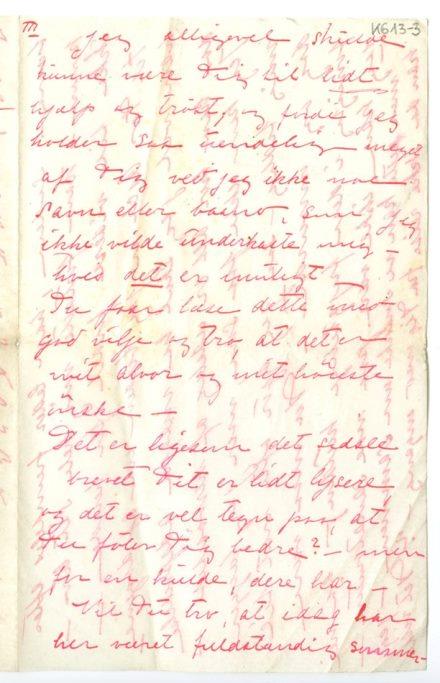 III
N613-3
jeg alligevel skulde
kunne være Dig til lidt
hjælp og trøst, og fordi jeg
holder saa uendelig meget
af Dig ved jeg ikke noe
Savn eller baand, som jeg
ikke vilde underkaste mig –
hvis det er muligt –
Du faar læse dette med
god vilje og tro, at det er
mit alvor og mit høieste
ønske –
Det er ligesom det sidste
brevet Dit er lidt lysere
og det er vel tegn paa, at
Du føler Dig bedre? – men
for en kulde, dere har –
Vil Du tro, at idag har
her været fuldstændig sommer-